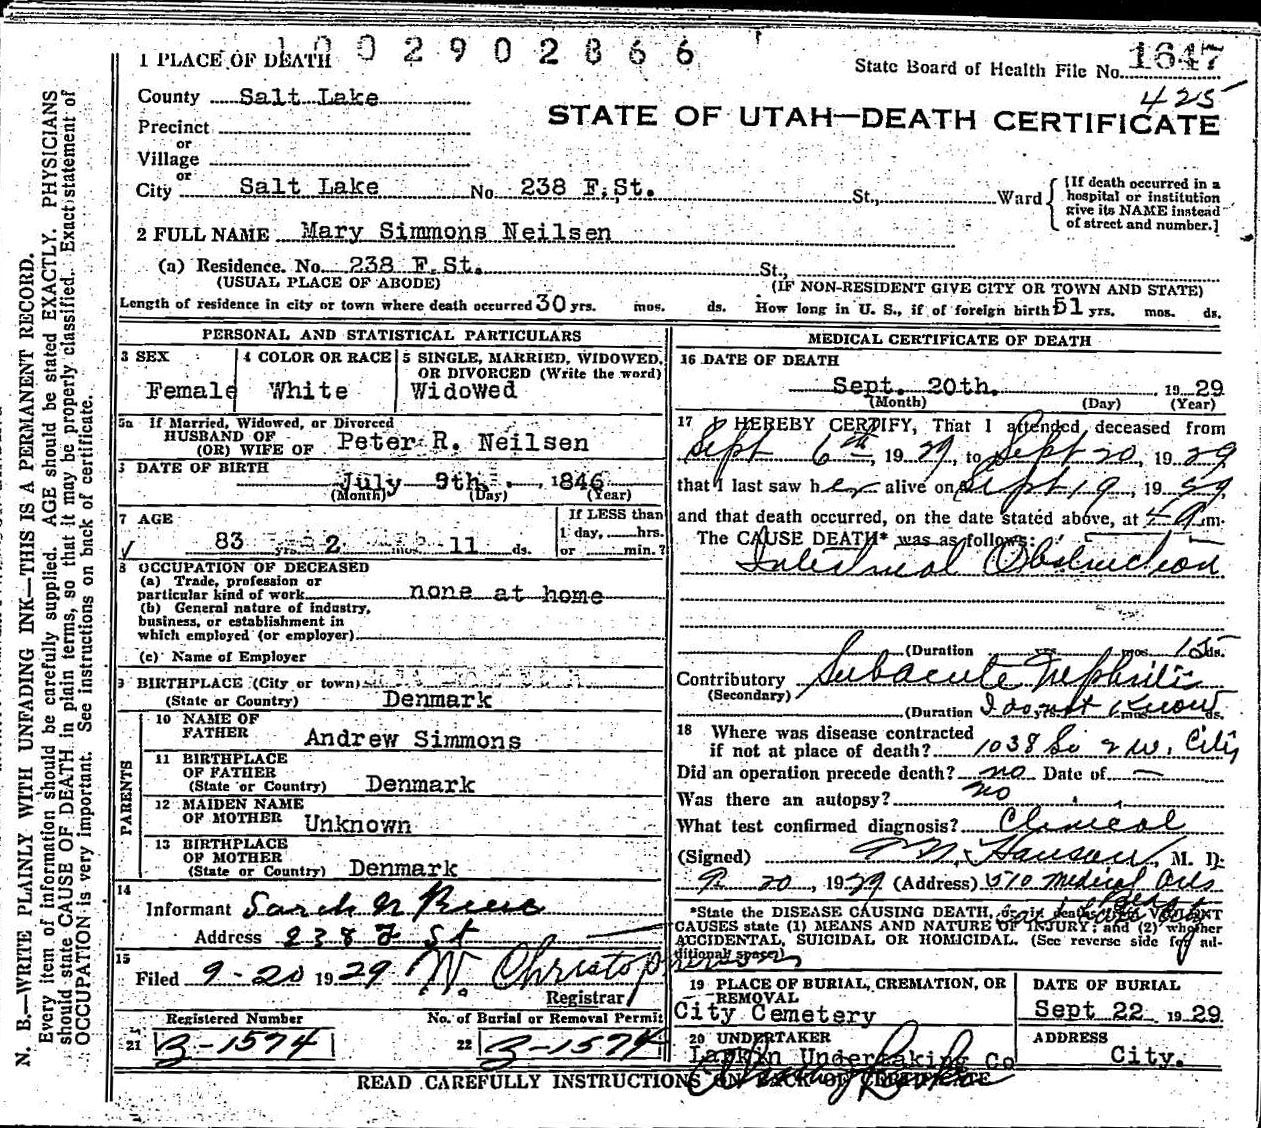 1002902866
1 PLACE OF DEATH
State Board of Health File No. 1647
425
County Salt Lake
STATE OF UTAH—DEATH CERTIFICATE
Precinct
or
Village
or
City Salt Lake No. 238 F. St. St., Ward
[If death occurred in a
hospital or institution
give its NAME instead
of street and number.]
2 FULL NAME Mary Simmons Neilsen
(a) Residence. No. 238 F. St. St.,
(USUAL PLACE OF ABODE) (IF NON-RESIDENT GIVE CITY OR TOWN AND STATE)
Length of residence in city or town where death occurred 30 yrs. mos. ds. How long in U. S., if of foreign birth 51 yrs. mos. ds.
PERSONAL AND STATISTICAL PARTICULARS
3 SEX 4 COLOR OR RACE 5 SINGLE, MARRIED, WIDOWED,
OR DIVORCED (Write the word)
Female White Widowed
5a If Married, Widowed, or Divorced
HUSBAND OF
(OR) WIFE OF Peter R. Neilsen
DATE OF BIRTH
July 9th. 1846
(Month) (Day) (Year)
7 AGE If LESS than
1 day, hrs.
83 yrs. 2 mos. 11 ds. or min.?
8 OCCUPATION OF DECEASED
(a) Trade, profession or
particular kind of work none at home
(b) General nature of industry,
business, or establishment in
which employed (or employer)
(c) Name of Employer
9 BIRTHPLACE (City or town)
(State or Country) Denmark
PARENTS
10 NAME OF
FATHER Andrew Simmons
11 BIRTHPLACE
OF FATHER
(State or Country) Denmark
12 MAIDEN NAME
OF MOTHER Unknown
13 BIRTHPLACE
OF MOTHER
(State or Country) Denmark
14
Informant Sarah N
Address 238 F St
15
Filed 9-20 1929 W. Christopherson
Registrar
Registered Number No. of Burial or Removal Permit
21 B-1574 22 B-1574
MEDICAL CERTIFICATE OF DEATH
16 DATE OF DEATH
Sept. 20th. 1929
(Month) (Day) (Year)
17 I HEREBY CERTIFY, That I attended deceased from
Sept 6th, 1929, to Sept 20, 1929
that I last saw her alive on Sept 19, 1929
and that death occurred, on the date stated above, at 4 a.m.
The CAUSE DEATH* was as follows:
Intestinal Obstruction
(Duration yrs. mos. 15 ds.
Contributory Subacute Nephritis
(Secondary)
(Duration I do not know
18 Where was disease contracted
if not at place of death? 1038 So 2 W. City
Did an operation precede death? no Date of —
Was there an autopsy? no
What test confirmed diagnosis? Clinical
(Signed) Hansen, M. D.
9 20, 1929 (Address) 510 Medical Arts
Bldg
*State the DISEASE CAUSING DEATH, or in deaths from VIOLENT
CAUSES state (1) MEANS AND NATURE OF INJURY; and (2) whether
ACCIDENTAL, SUICIDAL OR HOMICIDAL. (See reverse side for ad-
ditional space)
19 PLACE OF BURIAL, CREMATION, OR
REMOVAL
City Cemetery
DATE OF BURIAL
Sept 22 1929
20 UNDERTAKER
Larkin Undertaking Co
ADDRESS
City.
READ CAREFULLY INSTRUCTIONS ON BACK OF CERTIFICATE
N. B.—WRITE PLAINLY WITH UNFADING INK—THIS IS A PERMANENT RECORD.
Every item of information should be carefully supplied. AGE should be stated EXACTLY. PHYSICIANS
should state CAUSE OF DEATH in plain terms, so that it may be properly classified. Exact statement of
OCCUPATION is very important. See instructions on back of certificate.